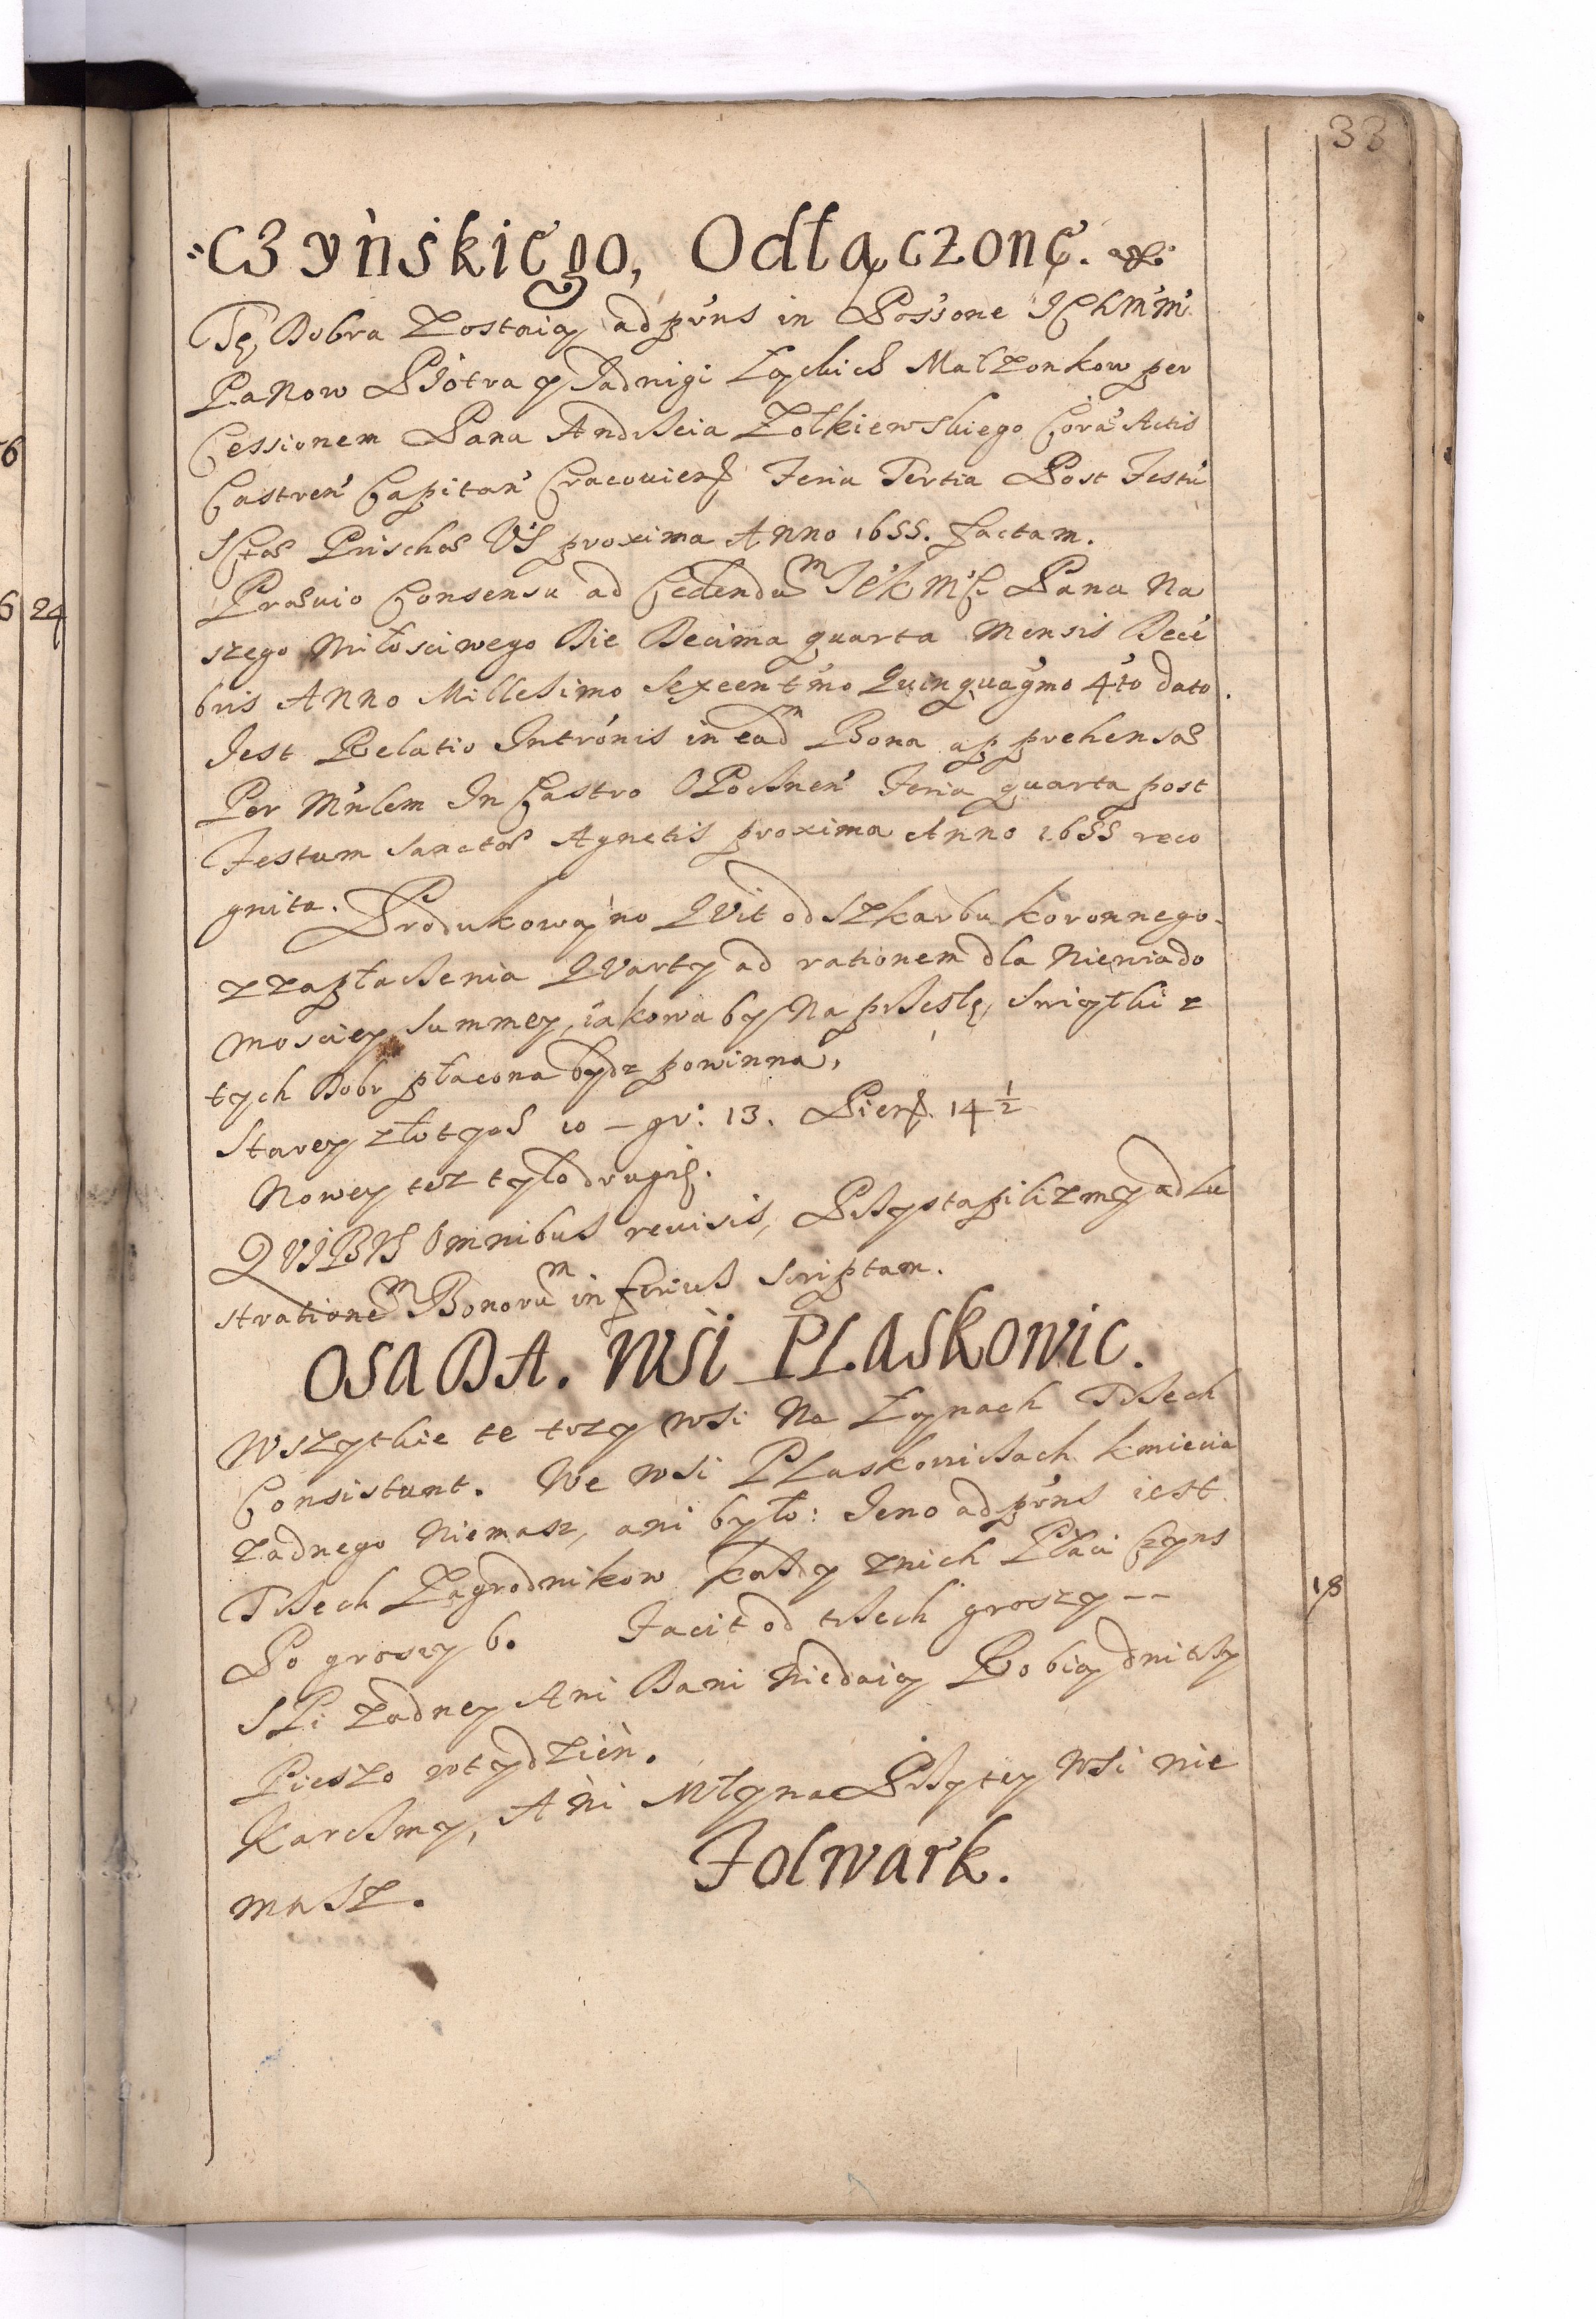 33
czyńskiego, Odłączone.
Te, Dobra Zostaią ad prńs in Poss'one JchMM'
Panow Piotra y Jadwigi Łąckich Małzonkow per
Cessionem Pana Andrzeia Zołkiewskiego Corā Actis
Castren' Capitan' Cracouien Feria Tertia Post Festū
Sctae Priscae VS proxima Anno 1655. factam.
Praeuio Consensu ad Cedendum JeK Mci Pana Na
szego Miłosciwego Die Decima quarta Mensis Decē
bris Anno Millesimo Sexcentmo Quinquagmo 4to dato.
Jest Relatio Intronis in eadm Bona apprehensae
Per Mnlem In Castro OPocznen' Feria quarta post
Festum Sanctae Agnetis proxima Anno 1655 reco
gnita. Produkowano QVit od Szkarbu koronnego
z zapłaczenia QVarty ad rationem dla Niewiado
mosciey Summey, iakowa by Na przeszłe, Swiątki z
tych Dobr płacona bydz powinna,
Starey złotych 10 – gr: 13. Pien. 14 1/2
Nowey tez tyło drugie.
QVIBVS Omnibus reuisis, Przystąpilizmy ad Lu
strationem Bonorum inferius Scriptam.
OSADA. WSi PLASKOWIC.
Wszytkie te trzy wsi Na Łanach Trzech
Consistunt. We wsi PLaskowicach kmiecia
zadnego Niemasz, ani było: Jeno ad prńs iest
Trzech Zagrodnikow kazdy znich Płaci Czyns
Po groszy 6. Facit od trzech groszy -- 18
SPi zadney Ani Dani Niedaią Robią dni trzy
Pieszo w tydzień.
Karczmy, Ani Młyna Przy tey Wsi nie
masz.
Folwark.
6
24